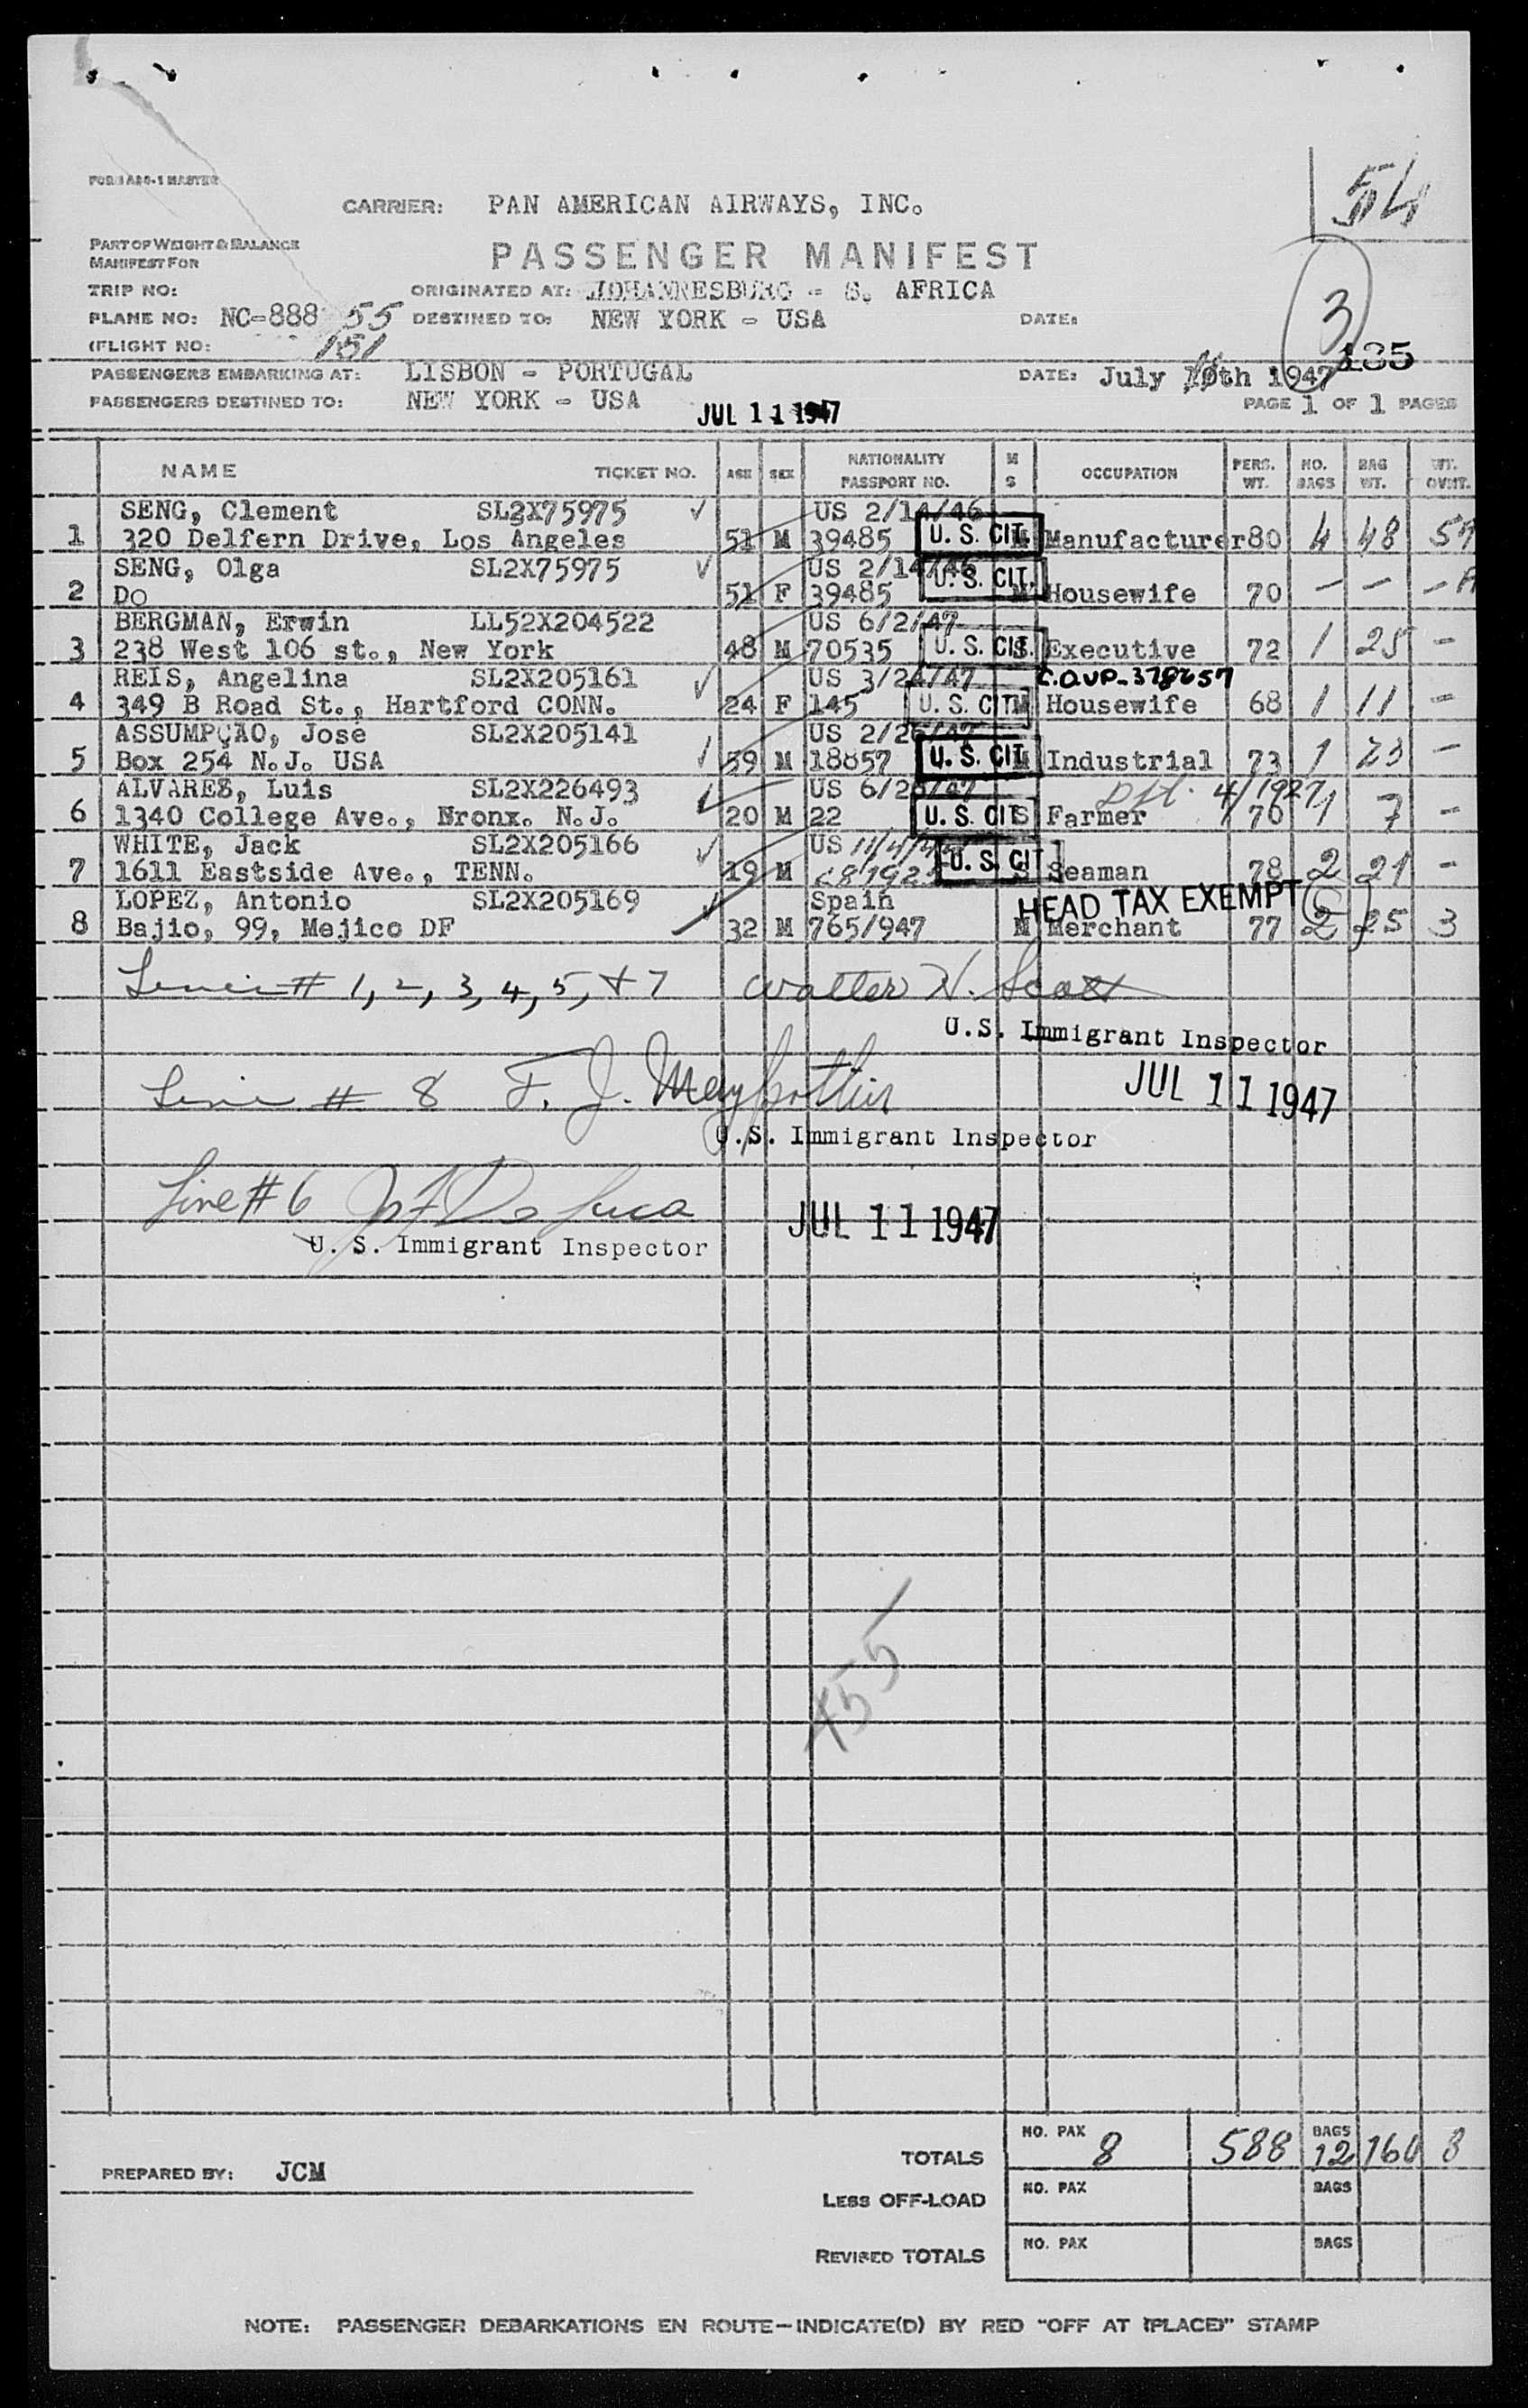 FORM A80-1 MASTER
54
CARRIER: PAN AMERICAN AIRWAYS, INC.
PART OF WEIGHT & BALANCE
MANIFEST FOR
PASSENGER MANIFEST
TRIP NO: ORIGINATED AT: JOHANNESBURG - S. AFRICA
3
PLANE NO: NC-888 55 DESTINED TO: NEW YORK - USA DATE:
(FLIGHT NO: 151
185
PASSENGERS EMBARKING AT: LISBON - PORTUGAL DATE: July th 1947
PASSENGERS DESTINED TO: NEW YORK - USA JUL 11 1947 PAGE 1 OF 1 PAGES
NAME TICKET NO. AGE SEX NATIONALITY PASSPORT NO. M S OCCUPATION PERS. WT. NO. BAGS BAG WT. WT. OVWT.
SENG, Clement SL2X75975 ✓ US 2/14/46
1 320 Delfern Drive, Los Angeles 51 M 39485 U. S. CIT. M Manufacturer 80 4 48
SENG, Olga SL2X75975 ✓ US 2/14/46
2 DO 51 F 39485 U. S. CIT. M Housewife 70 — —
BERGMAN, Erwin LL52X204522 US 6/2/47
3 238 West 106 st., New York 48 M 70535 U. S. CIT. Executive 72 1 25 —
REIS, Angelina SL2X205161 ✓ US 3/24/47 C.OUP-378657
4 349 B Road St., Hartford CONN. 24 F 145 U. S. CIT M Housewife 68 1 11 —
ASSUMPÇÃO, Jose SL2X205141 US 2/26/47
5 Box 254 N.J. USA ✓ 59 M 18857 U. S. CIT. M Industrial 73 1 23 —
ALVAREZ, Luis SL2X226493 ✓ US 6/20/47 4/1927
6 1340 College Ave., Bronx. N.J. 20 M 22 U. S. CIT S Farmer 70 1 7 —
WHITE, Jack SL2X205166 ✓ US
7 1611 Eastside Ave., TENN. 19 M U. S. CIT S Seaman 78 2 21 —
LOPEZ, Antonio SL2X205169 ✓ Spain HEAD TAX EXEMPT
8 Bajio, 99, Mejico DF 32 M 765/947 M Merchant 77 2 25 3
# 1, 2, 3, 4, 5, + 7 Walter H. Scott
U.S. Immigrant Inspector
# 8 F. J.
JUL 11 1947
U.S. Immigrant Inspector
Line # 6 De Luca JUL 11 1947
U. S. Immigrant Inspector
455
TOTALS NO. PAX 8 588 BAGS 12 160 3
PREPARED BY: JCM
LESS OFF-LOAD NO. PAX BAGS
REVISED TOTALS NO. PAX BAGS
NOTE: PASSENGER DEBARKATIONS EN ROUTE—INDICATE(D) BY RED "OFF AT (PLACE)" STAMP